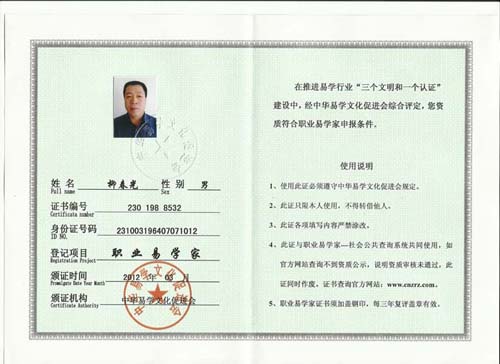 姓名 柳春光 性别 男
Full name Sex
证书编号 230 198 8532
Certificate number
身份证号码 231003196407071012
ID NO.
登记项目 职业易学家
Registration Project
颁证时间 2012 年 03 月
Promulgate Date Year Month
颁证机构 中华易学文化促进会
Certificate Authority
中华易学文化促进会
在推进易学行业“三个文明和一个认证”
建设中，经中华易学文化促进会综合评定，您资
质符合职业易学家申报条件。
使用说明
1、使用此证必须遵守中华易学文化促进会规定。
2、此证只限本人使用，不得转借他人。
3、此证各项填写内容严禁涂改。
4、此证与职业易学家—社会公共查询系统共同使用，如
官方网站查询不到资质公示，说明资质审核未通过，此
证同时作废。证书查询官方网站：www.cnzrz.com。
5、职业易学家证书须加盖钢印，每三年复评盖章有效。